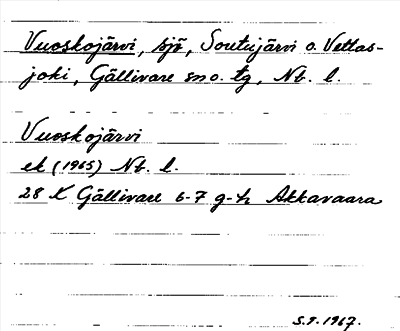 Vuoskojärvi, sjö, Soutujärvi o. Vettas-
joki, Gällivare sn o. tg, Nb. l.
Vuoskojärvi
ek (1965) Nb. l.
28 K Gällivare 6-7 g-h Akkavaara
S.S. 1967.